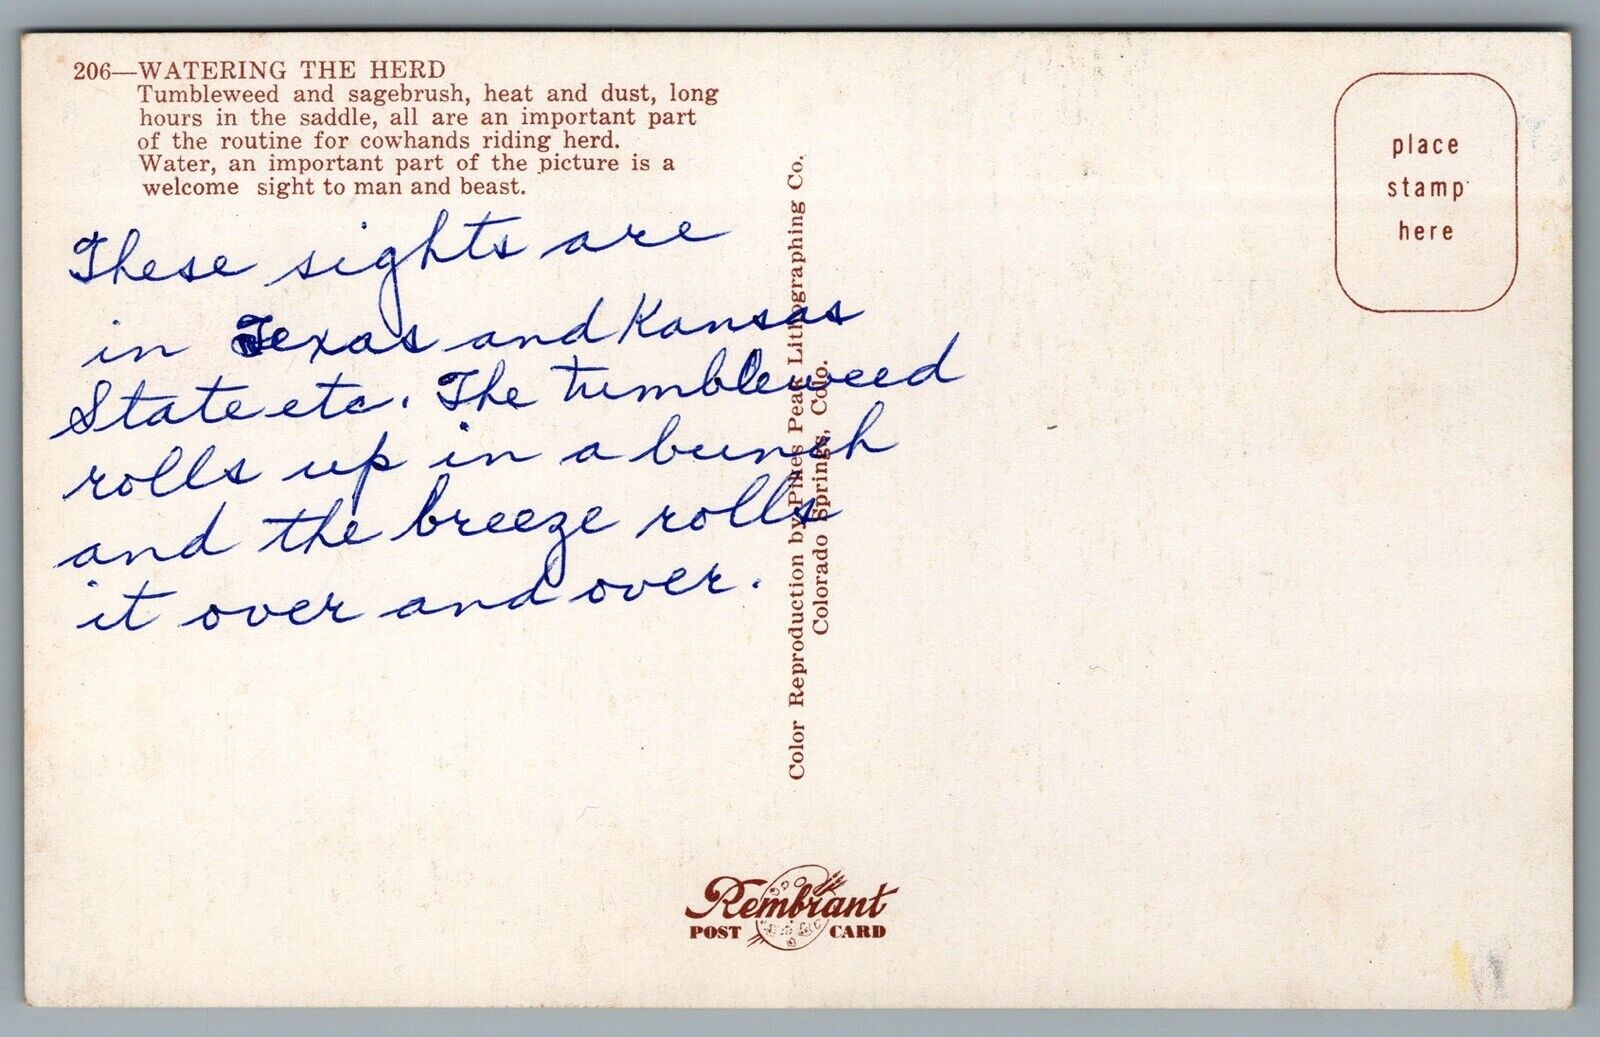 206—WATERING THE HERD
Tumbleweed and sagebrush, heat and dust, long
hours in the saddle, all are an important part
of the routine for cowhands riding herd.
Water, an important part of the picture is a
welcome sight to man and beast.
These sights are
in Texas and Kansas
State etc. The tumbleweed
rolls up in a bunch
and the breeze rolls
it over and over.
Color Reproduction by Pikes Peak Lithographing Co.
Colorado Springs, Colo.
place
stamp
here
Rembrant
POST CARD